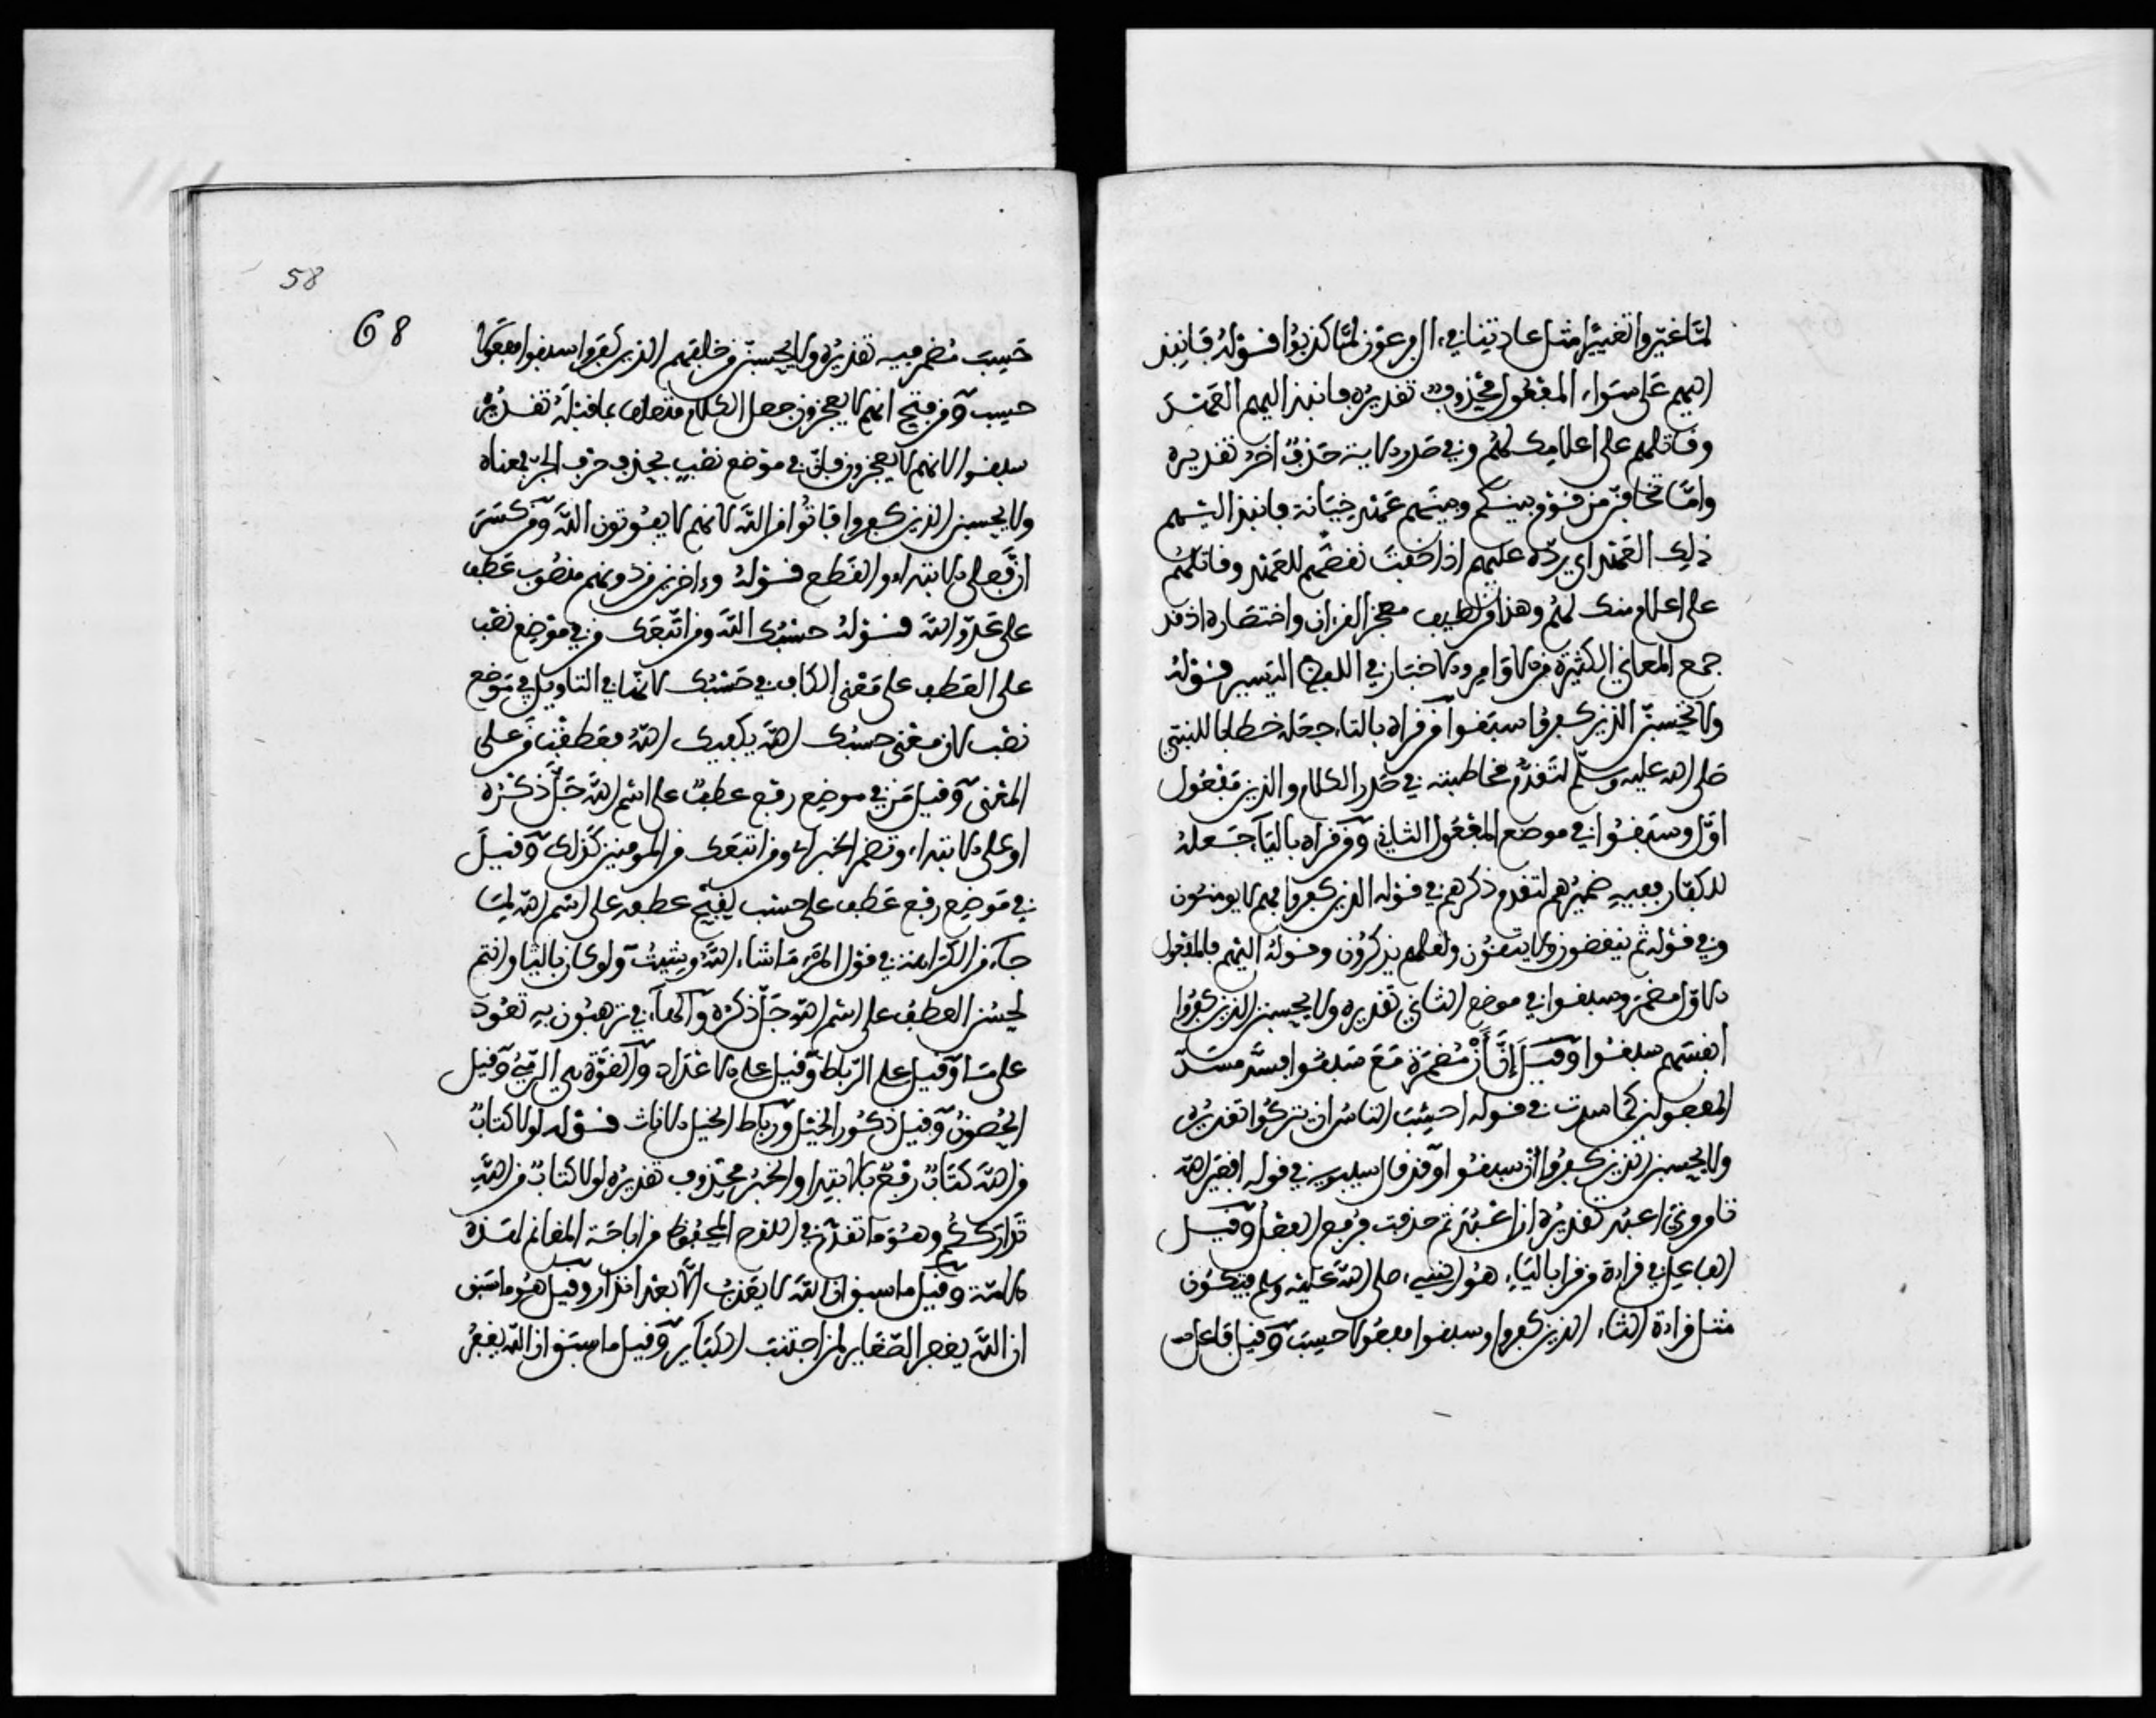 لمّا غيّروا تغييرا مثل عادتنا في ءال فرعون لمّا كذبوا قوله فانبذ
اليهم على سواء المفعول محذوف تقديره فانبذ اليهم العهد
وقاتلهم على اعلامك لهم وفي صدر الاية حذف اخر تقديره
وامّا تخافنّ من قوم بينكم وبينهم عهد خيانة فانبذ اليهم
ذلك العهد اي ردّه عليهم اذا خفت نقضهم للعهد وقاتلهم
على اعلام منك لهم وهذا من لطيف معجز القرءان واختصاره اذ قد
جمع المعاني الكثيرة من الاوامر والاخبار في اللفظ اليسير قوله
ولا تحسبنّ الذين كفروا سبقوا من قراه بالتاء جعله خطابا للنبي
صلى الله عليه وسلم لتقدّم مخاطبته في صدر الكلام والذين مفعول
اوّل وسبقوا في موضع المفعول الثاني ومن قراه بالياء جعله
للكفار ففيه ضميرهم لتقدم ذكرهم في قوله الذين كفروا فهم لا يومنون
وفي قوله ثم ينقضون ولا يتقون ولعلهم يذكرون وقوله اليهم فالمفعول
الاول مضمر وسبقوا في موضع الثاني تقديره ولا يحسبن الذين كفروا
انفسهم سبقوا وقيل إنّ أَنْ مضمرة مع سبقوا فسدّ مسدّ
المفعولين كما سدت في قوله احسب الناس ان يتركوا تقديره
ولا يحسبن الذين كفروا أن سبقوا وقد قال سيبويه في قوله افغير الله
تامروني اعبد تقديره ان اعبد ثم حذفت فرفع الفعل وقيل
الفاعل في قراءة من قرا بالياء هو النبيء صلى الله عليه وسلم فيكون
مثل قراءة التاء الذين كفروا وسبقوا مفعولا حسب وقيل فاعل
58
68
حسب مضمر فيه تقديره ولا يحسبنّ من خلفهم الذين كفروا سبقوا مفعولا
حسب ومن فتح انهم لا يعجزون جعل الكلام متعلق بما قبله تقديره
سبقوا لانهم لا يعجزون فانّ في موضع نصب بحذف حرف الجر فمعناه
ولا يحسبن الذين كفروا فاتوا من الله لانهم لا يفوتون الله ومن كسر
انّ فعلى الابتداء والقطع قوله وءاخرين من دونهم منصوب عطف
على عدوّ الله قوله حسبك الله ومن اتبعك من في موضع نصب
على العطف على معنى الكاف في حسبك لانها في التاويل في موضع
نصب لان معنى حسبك الله يكفيك الله فعطفت من على
المعنى وقيل من في موضع رفع عطف على اسم الله جلّ ذكره
او على الابتداء وتضمر الخبر اي ومن اتبعك من المومنين كذلك وقيل
في موضع رفع عطف على حسب لقبح عطفه على اسم الله لما
جاء من الكراهة في قول المرء ما شاء الله وشيت ولو كان بالفاء او ثم
لحسن العطف على اسم الله جلّ ذكره والهاء في ترهبون به تعود
على ما وقيل على الرباط وقيل على الاعداد والقوّة هي الرمي وقيل
الحصون وقيل ذكور الخيل ورباط الخيل الاناث قوله لولا كتاب
من الله كتاب رفع بالابتداء والخبر محذوف تقديره لولا كتاب من الله
تدارككم وهو ما تقدم في اللوح المحفوظ من اباحة الغنائم لهذه
الامة وقيل ما سبق ان الله لا يعذب الّا بعد انذار وقيل هو ما سبق
ان الله يغفر الصغاير لمن اجتنب الكباير وقيل ما سبق ان الله يغفر